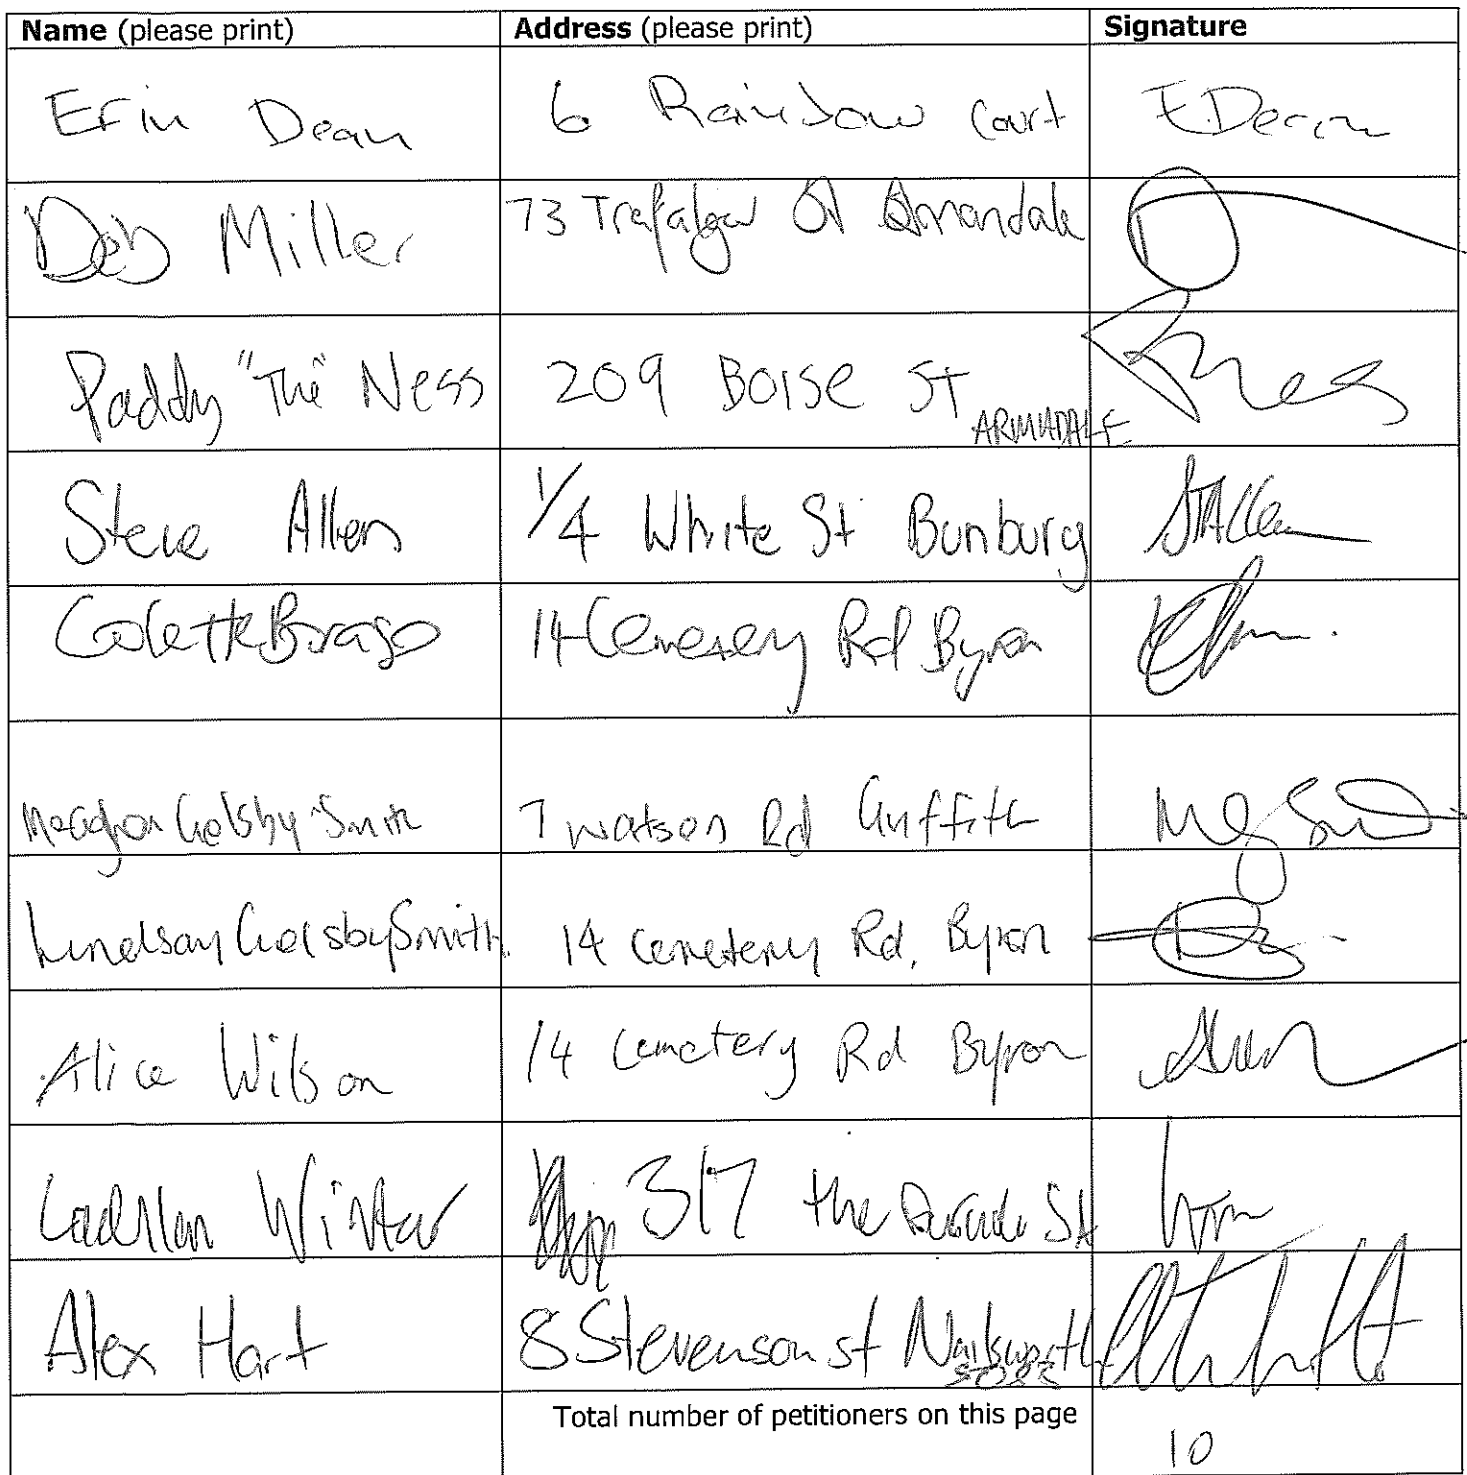 Name (please print) Address (please print) Signature
Erin Dean 6 Rainbow Court E Dean
Deb Miller 73 Trafalgar St Annandale
Paddy "The" Ness 209 BOISE ST ARMADALE
Steve Allen 1/4 White St Bunbury STAllen
Colette 14 Cemetery Rd Byron
Meaghan Golsby-Smith 7 Watson Rd Griffith
Lindsay Golsby Smith 14 Cemetery Rd, Byron
Alice Wilson 14 Cemetery Rd Byron
Winter 317 the Parade St
Alex Hart 8 Stevenson st Nailsworth
Total number of petitioners on this page
10